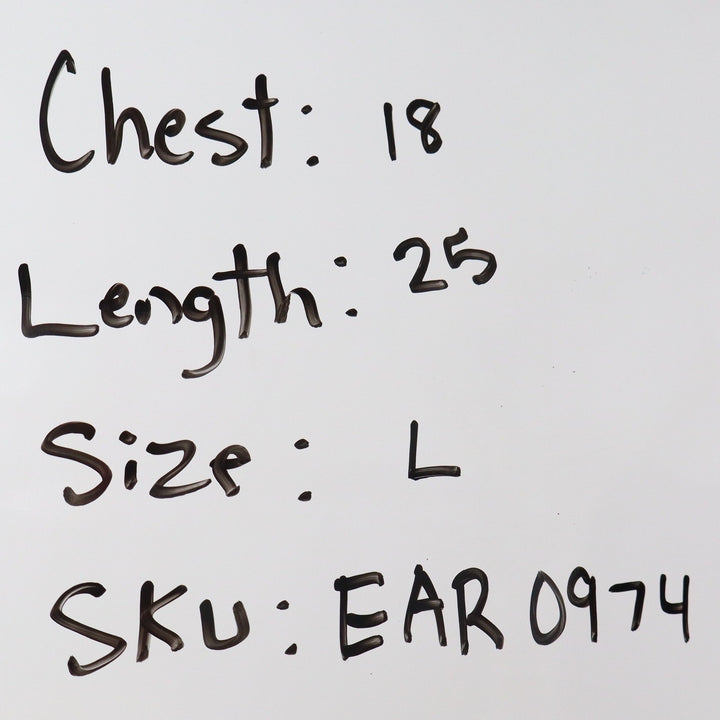 Chest: 18
Length: 25
Size: L
SKU: EAR 0974